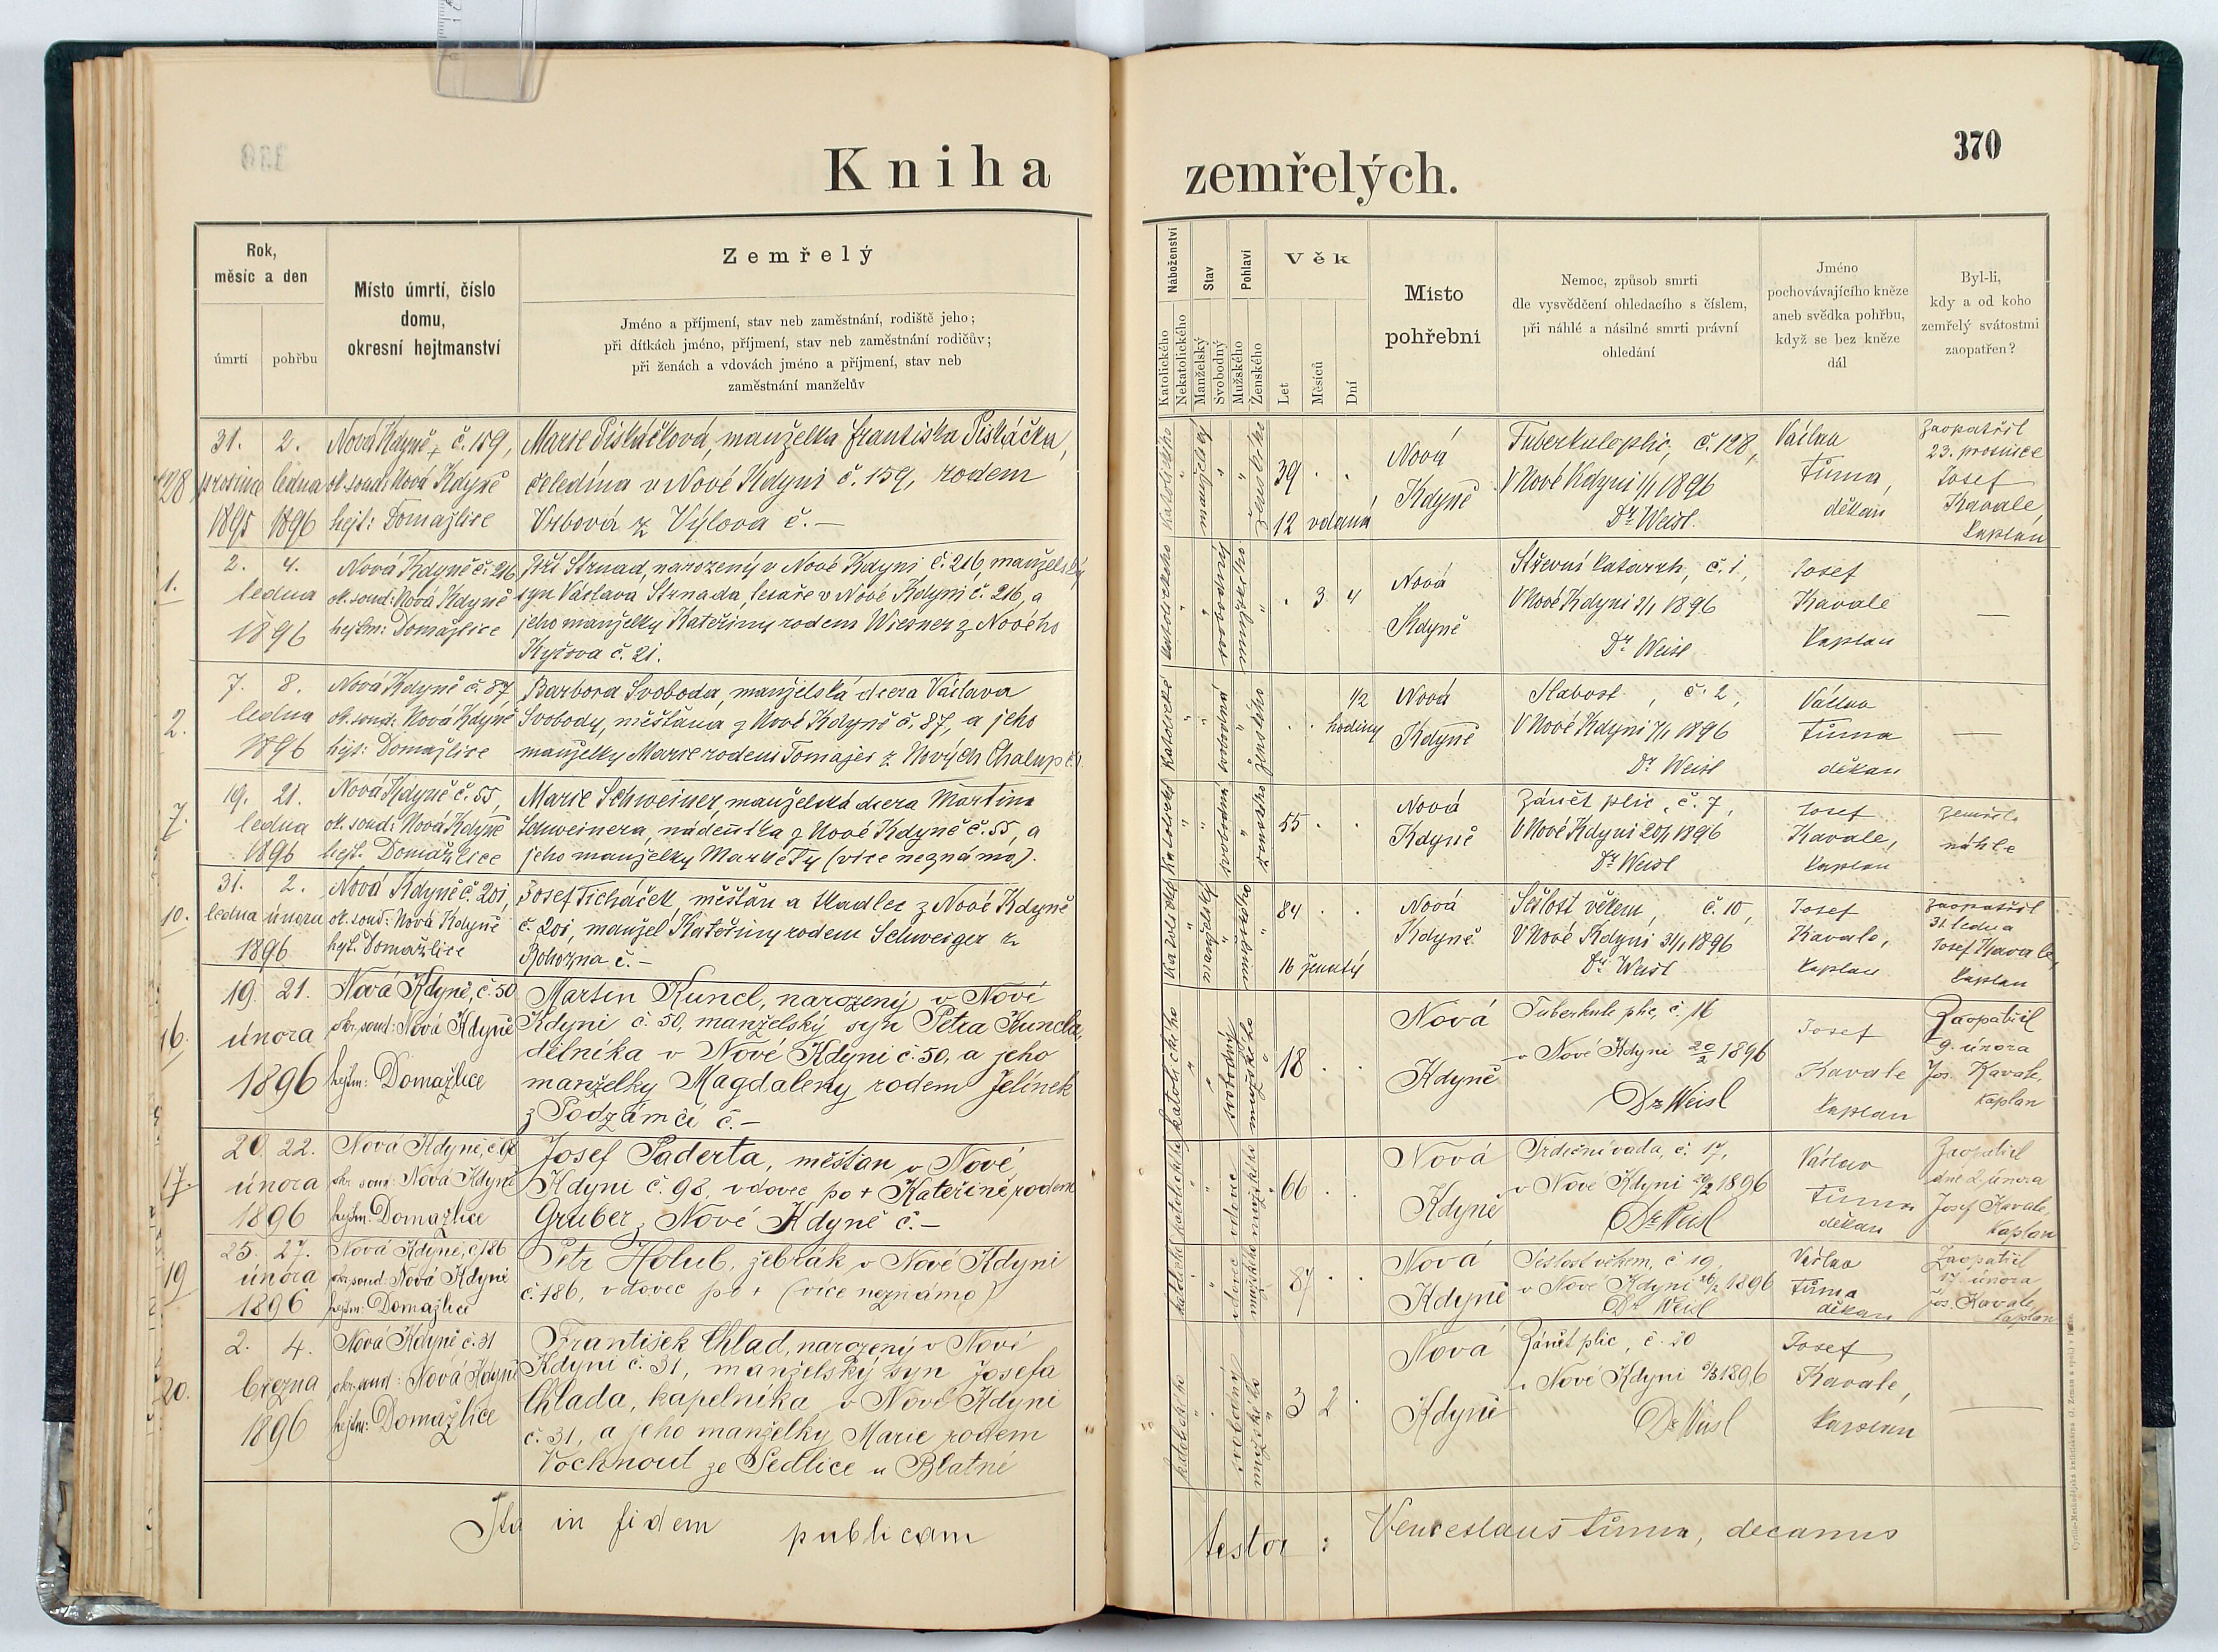 Kniha zemřelých.
370
Rok,
měsíc a den
úmrtí
pohřbu
Místo úmrtí, číslo
domu,
okresní hejtmanství
Zemřelý
Jméno a příjmení, stav neb zaměstnání, rodiště jeho;
při dítkách jméno, příjmení, stav neb zaměstnání rodičův;
při ženách a vdovách jméno a příjmení, stav neb
zaměstnání manželův
Náboženství
Katolického
Nekatolického
Stav
Manželský
Svobodný
Pohlaví
Mužského
Ženského
Věk
Let
Měsíců
Dní
Místo
pohřební
Nemoc, způsob smrti
dle vysvědčení ohledacího s číslem,
při náhlé a násilné smrti právní
ohledání
Jméno
pochovávajícího kněze
aneb svědka pohřbu,
když se bez kněze
dál
Byl-li,
kdy a od koho
zemřelý svátostmi
zaopatřen?
128
31.
prosince
1895
2.
ledna
1896
Nová Kdyně, č. 159,
ok. soud: Nová Kdyně
hejt: Domažlice
Marie Pisláčková, manželka Františka Pisláčka,
čeledína v Nové Kdyni č. 159, rodem
Vrbová z Výlova č. —
katolického
manželský
ženského
39 . .
12 vdaná
Nová
Kdyně
Tuberkule plic, č. 128,
V Nové Kdyni 1/1 1896
Dr. Weisl.
Václav
Tůma,
děkan
Zaopatřil
23. prosince
Josef
Kavale
kaplan
1.
2. 4.
ledna
1896
Nová Kdyně č. 216
ok. soud: Nová Kdyně
hejtm: Domažlice
Jiří Strnad, narozený v Nové Kdyni č. 216, manželský
syn Václava Strnada, tesaře v Nové Kdyni č. 216, a
jeho manželky Kateřiny rodem Wiesner z Nového
Kyčova č. 21.
katolického
svobodný
mužského
. 3 4
Nová
Kdyně
Střevní katarrh, č. 1,
V Nové Kdyni 3/1 1896
Dr Weisl
Josef
Kavale
kaplan
—
2.
7. 8.
ledna
1896
Nová Kdyně č. 87,
ok. soud: Nová Kdyně
hejt: Domažlice
Barbora Svoboda, manželská dcera Václava
Svobody, měšťana z Nové Kdyně č. 87, a jeho
manželky Marie rodem Tomajer z Nových Chalup č.
katolické
svobodná
ženského
. . 1/2
hodiny
Nová
Kdyně
Slabost, č. 2,
V Nové Kdyni 7/1 1896
Dr Weisl
Václav
Tůma
děkan
—
7.
19. 21.
ledna
1896
Nová Kdyně č. 55,
ok. soud: Nová Kdyně
hejt. Domažlice
Marie Schweiner, manželská dcera Martina
Schweinera, nádeníka z Nové Kdyně č. 55, a
jeho manželky Markéty (více neznámo).
katolické
svobodná
ženského
55 . .
Nová
Kdyně
Zánět plic, č. 7,
V Nové Kdyni 20/1 1896
Dr Weisl
Josef
Kavale,
kaplan
zemřela
náhle
10.
31.
ledna
2.
února
1896
Nová Kdyně č. 201,
ok. soud: Nová Kdyně
hejt. Domažlice
Josef Ticháček, měšťan a tkadlec z Nové Kdyně
č. 201, manžel Kateřiny rodem Schweiger z
Rohozna č. —
katolické
manželský
mužského
84 . .
16 ženatý
Nová
Kdyně
Sešlost věkem, č. 10,
V Nové Kdyni 31/1 1896
Dr. Weisl
Josef
Kavale,
kaplan
Zaopatřil
31. ledna
Josef Kavale,
kaplan
16.
19. 21.
února
1896
Nová Kdyně, č. 50
okr. soud: Nová Kdyně
hejtm: Domažlice
Martin Kuncl, narozený v Nové
Kdyni č. 50, manželský syn Petra Kuncla,
dělníka v Nové Kdyni č. 50, a jeho
manželky Magdaleny rodem Jelínek
z Podzámčí č. —
katolického
svobodný
mužského
18 . .
Nová
Kdyně
Tuberkule plic, č. 16
v Nové Kdyni 20/2 1896
Dr Weisl
Josef
Kavale
kaplan
Zaopatřil
9. února
Jos. Kavale,
kaplan
17.
20. 22.
února
1896
Nová Kdyně, č. 98
okr. soud: Nová Kdyně
hejtm: Domažlice
Josef Paderta, měšťan v Nové
Kdyni č. 98, vdovec po + Kateřině rodem
Gruber z Nové Kdyně č. —
katolické
vdovec
mužského
66 . .
Nová
Kdyně
Srdeční vada, č. 17,
v Nové Kdyni 20/2 1896
Dr Weisl
Václav
Tůma
děkan
Zaopatřil
dne 2. února
Josef Kavale,
kaplan
19
25. 27.
února
1896
Nová Kdyně, č. 186
okr. soud: Nová Kdyně
hejtm: Domažlice
Petr Holub, žebrák v Nové Kdyni
č. 186, vdovec po + (více neznámo)
katolické
vdovec
mužského
87 . .
Nová
Kdyně
Sešlost věkem, č. 19,
v Nové Kdyni 26/2 1896
Dr Weisl
Václav
Tůma
děkan
Zaopatřil
17. února
Jos. Kavale,
kaplan
20.
2. 4.
března
1896
Nová Kdyně č. 31
okr. soud: Nová Kdyně
hejtm: Domažlice
František Chlad, narozený v Nové
Kdyni č. 31, manželský syn Josefa
Chlada, kapelníka v Nové Kdyni
č. 31, a jeho manželky Marie rodem
Vochnout ze Sedlice u Blatné
katolického
svobodný
mužského
3 2 .
Nová
Kdyně
Zánět plic, č. 20
v Nové Kdyni 1896
Dr Weisl
Josef
Kavale,
kaplan
—
Ita in fidem publicam
testor: Venceslaus Tůma, decanus